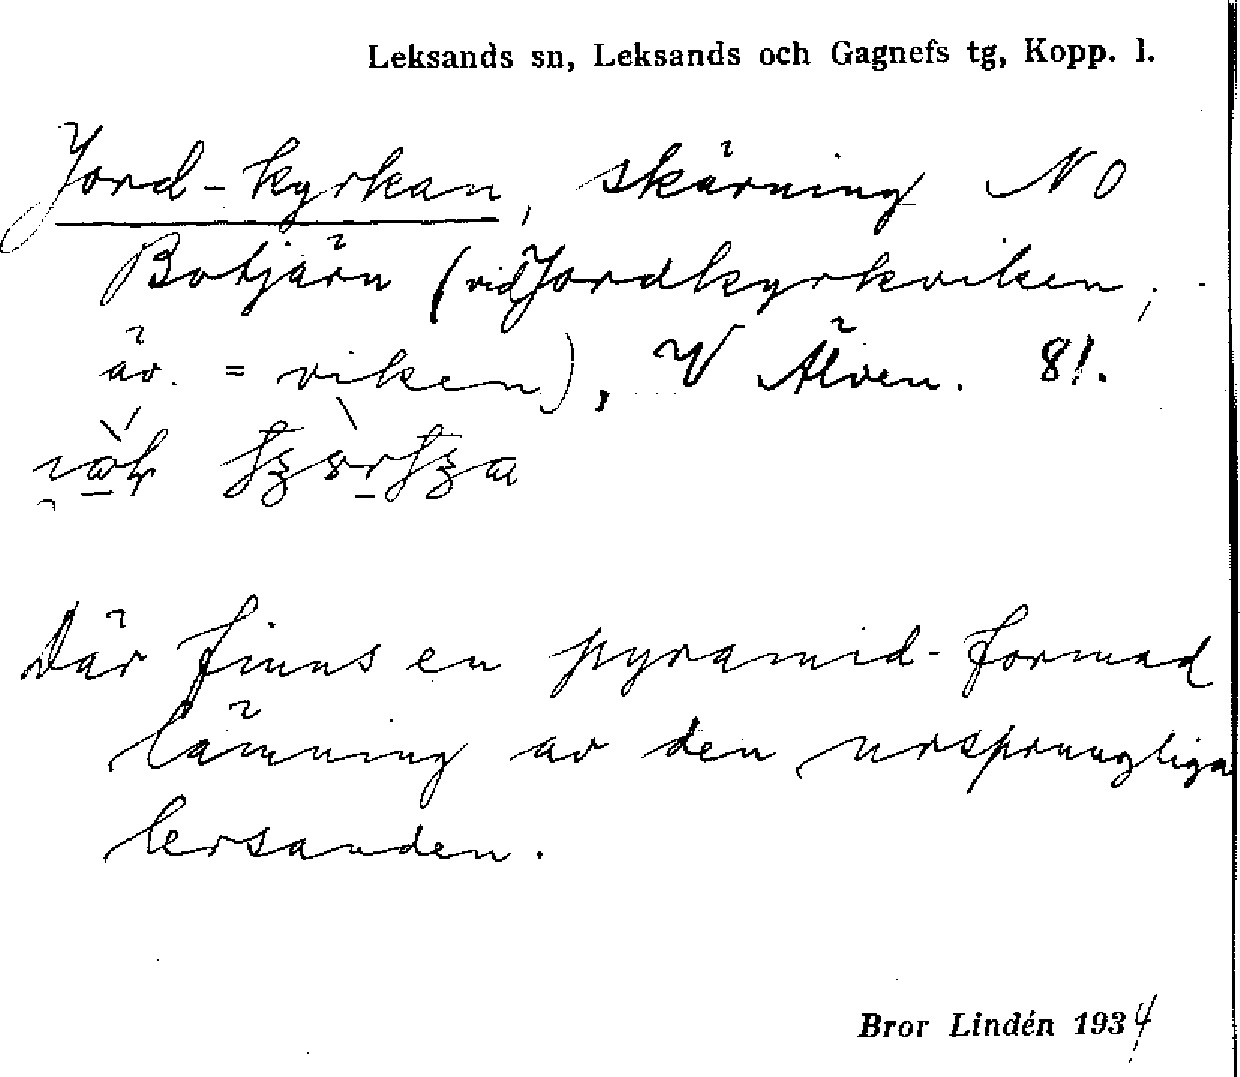 Leksands sn, Leksands och Gagnefs tg, Kopp. l.
Jord-kyrkan, skärning NO
Botjärn (vid Jordkyrkviken,
äv. = viken), V Älven. 81.
Där finns en pyramid-formad
lämning av den ursprungliga
lersanden.
Bror Lindén 1934